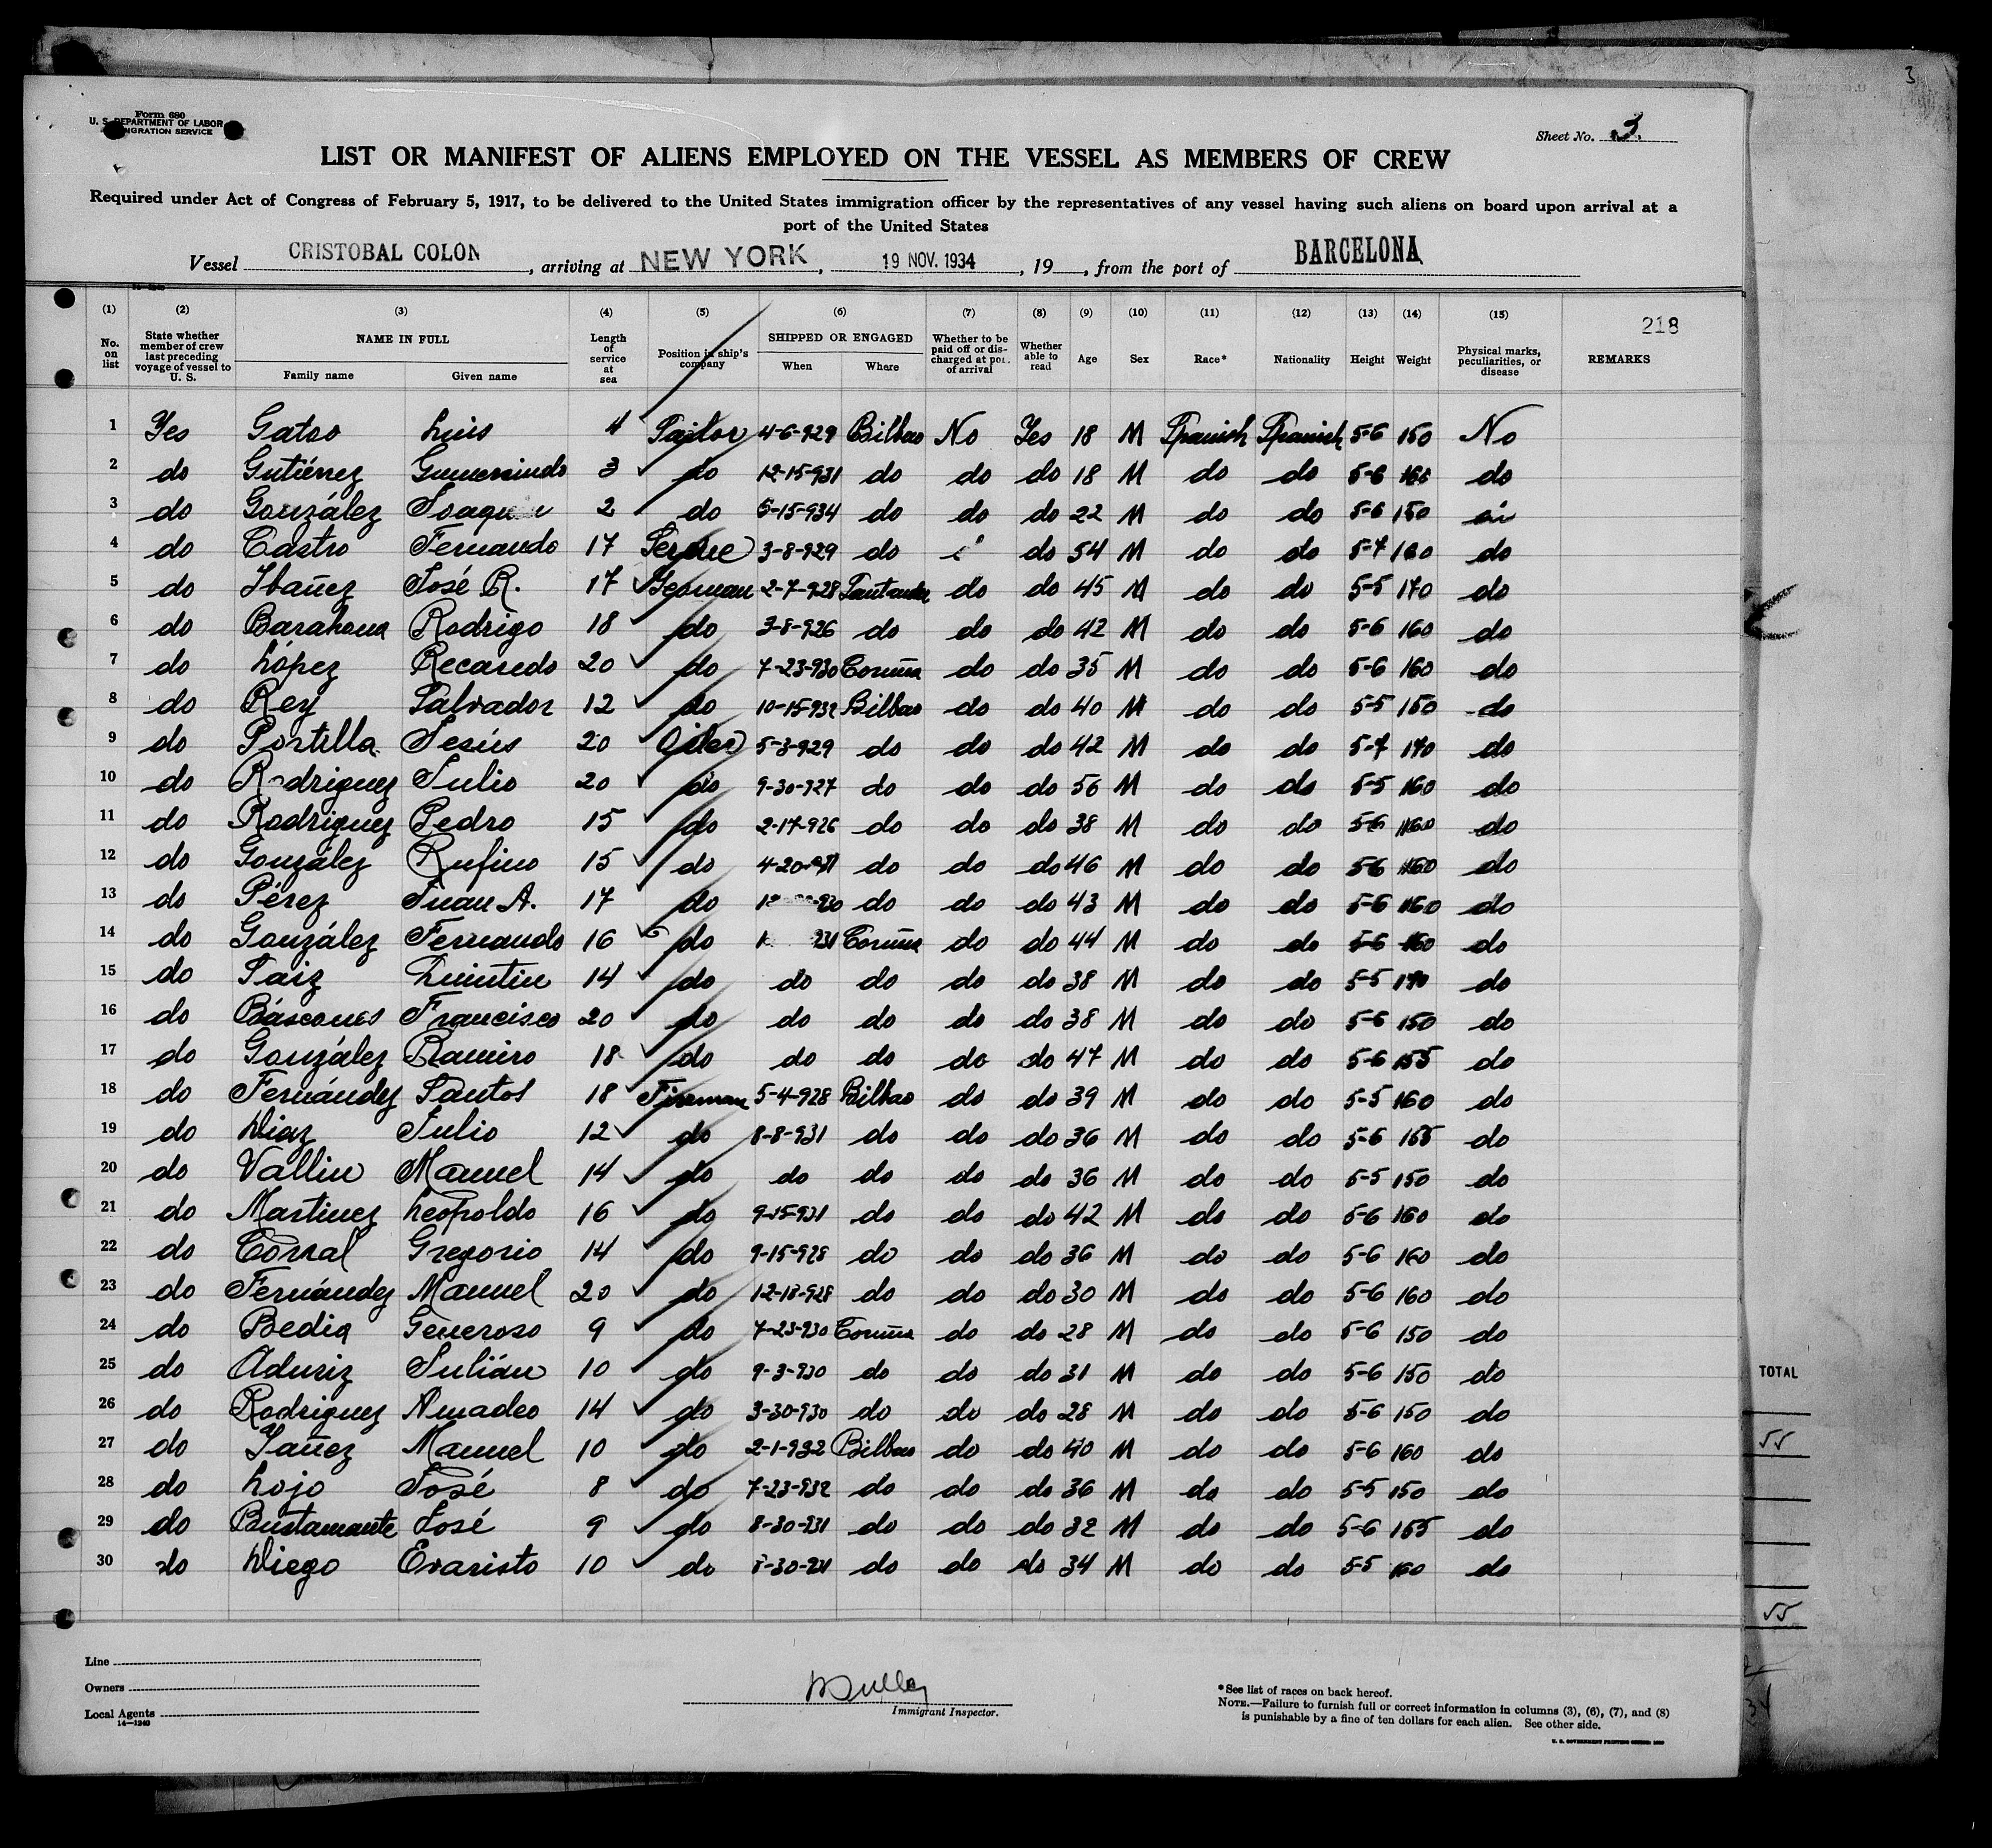 3
Form 680
U. S. DEPARTMENT OF LABOR
IMMIGRATION SERVICE
Sheet No. 3.
LIST OR MANIFEST OF ALIENS EMPLOYED ON THE VESSEL AS MEMBERS OF CREW
Required under Act of Congress of February 5, 1917, to be delivered to the United States immigration officer by the representatives of any vessel having such aliens on board upon arrival at a
port of the United States
Vessel CRISTOBAL COLON, arriving at NEW YORK, 19 NOV. 1934, 19 , from the port of BARCELONA
(1) (2) (3) (4) (5) (6) (7) (8) (9) (10) (11) (12) (13) (14) (15)
218
No. on list State whether member of crew last preceding voyage of vessel to U. S. NAME IN FULL Family name Given name Length of service at sea Position in ship's company SHIPPED OR ENGAGED When Where Whether to be paid off or discharged at port of arrival Whether able to read Age Sex Race* Nationality Height Weight Physical marks, peculiarities, or disease REMARKS
1 Yes Gatoo Luis 4 4-6-929 Bilbao No Yes 18 M Spanish Spanish 5-6 150 No
2 do Gutiérrez Gumersindo 3 do 12-15-931 do do do 18 M do do 5-6 160 do
3 do González Joaquin 2 do 5-15-934 do do do 22 M do do 5-6 150
4 do Castro Fernando 17 3-8-929 do do 54 M do do 5-7 160 do
5 do Ibañez José R. 17 2-7-928 Santander do do 45 M do do 5-5 170 do
6 do Barahona Rodrigo 18 do 3-8-926 do do do 42 M do do 5-6 160 do
7 do López Recaredo 20 do 7-23-930 Coruña do do 35 M do do 5-6 160 do
8 do Rey Salvador 12 do 10-15-932 Bilbao do do 40 M do do 5-5 150 do
9 do Portilla Jesús 20 Oiler 5-3-929 do do do 42 M do do 5-7 170 do
10 do Rodriguez Julio 20 do 9-30-927 do do do 56 M do do 5-5 160 do
11 do Rodriguez Pedro 15 do 2-17-926 do do do 38 M do do 5-6 160 do
12 do González Rufino 15 do 4-20-931 do do do 46 M do do 5-6 160 do
13 do Pérez Juan A. 17 do do do do 43 M do do 5-6 160 do
14 do González Fernando 16 do Coruña do do 44 M do do 5-6 160 do
15 do Saiz Quintin 14 do do do do do 38 M do do 5-5 170 do
16 do Báscones Francisco 20 do do do do do 38 M do do 5-6 150 do
17 do González Ramiro 18 do do do do do 47 M do do 5-6 155 do
18 do Fernández Santos 18 Fireman 5-4-928 Bilbao do do 39 M do do 5-5 160 do
19 do Diaz Julio 12 do 8-8-931 do do do 36 M do do 5-6 155 do
20 do Vallin Manuel 14 do do do do do 36 M do do 5-5 150 do
21 do Martinez Leopoldo 16 do 9-15-931 do do do 42 M do do 5-6 160 do
22 do Corral Gregorio 14 do 9-15-928 do do do 36 M do do 5-6 160 do
23 do Fernández Manuel 20 do 12-18-928 do do do 30 M do do 5-6 160 do
24 do Bedia Generoso 9 do 7-23-930 Coruña do do 28 M do do 5-6 150 do
25 do Aduriz Julián 10 do 9-3-930 do do do 31 M do do 5-6 150 do
26 do Rodriguez Amadeo 14 do 3-30-930 do do do 28 M do do 5-6 150 do
27 do Yañez Manuel 10 do 2-1-932 Bilbao do do 40 M do do 5-6 160 do
28 do Lojo José 8 do 7-23-932 do do do 36 M do do 5-5 150 do
29 do Bustamante José 9 do 8-30-931 do do do 32 M do do 5-6 155 do
30 do Diego Evaristo 10 do 8-30-931 do do do 34 M do do 5-5 160 do
TOTAL
55
55
Line
Owners
Local Agents
14—1240
Immigrant Inspector.
*See list of races on back hereof.
NOTE.—Failure to furnish full or correct information in columns (3), (6), (7), and (8)
is punishable by a fine of ten dollars for each alien. See other side.
U. S. GOVERNMENT PRINTING OFFICE